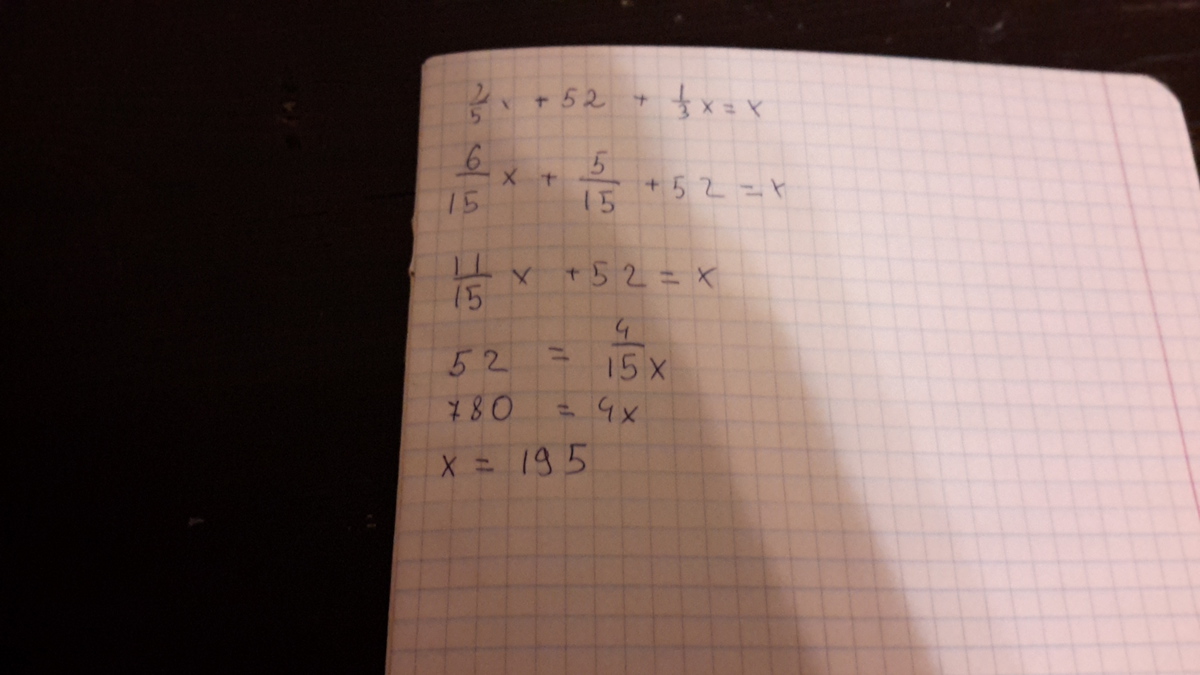 2/5 x + 52 + 1/3 x = x
6/15 x + 5/15 + 52 = x
11/15 x + 52 = x
52 = 4/15 x
780 = 4x
x = 195